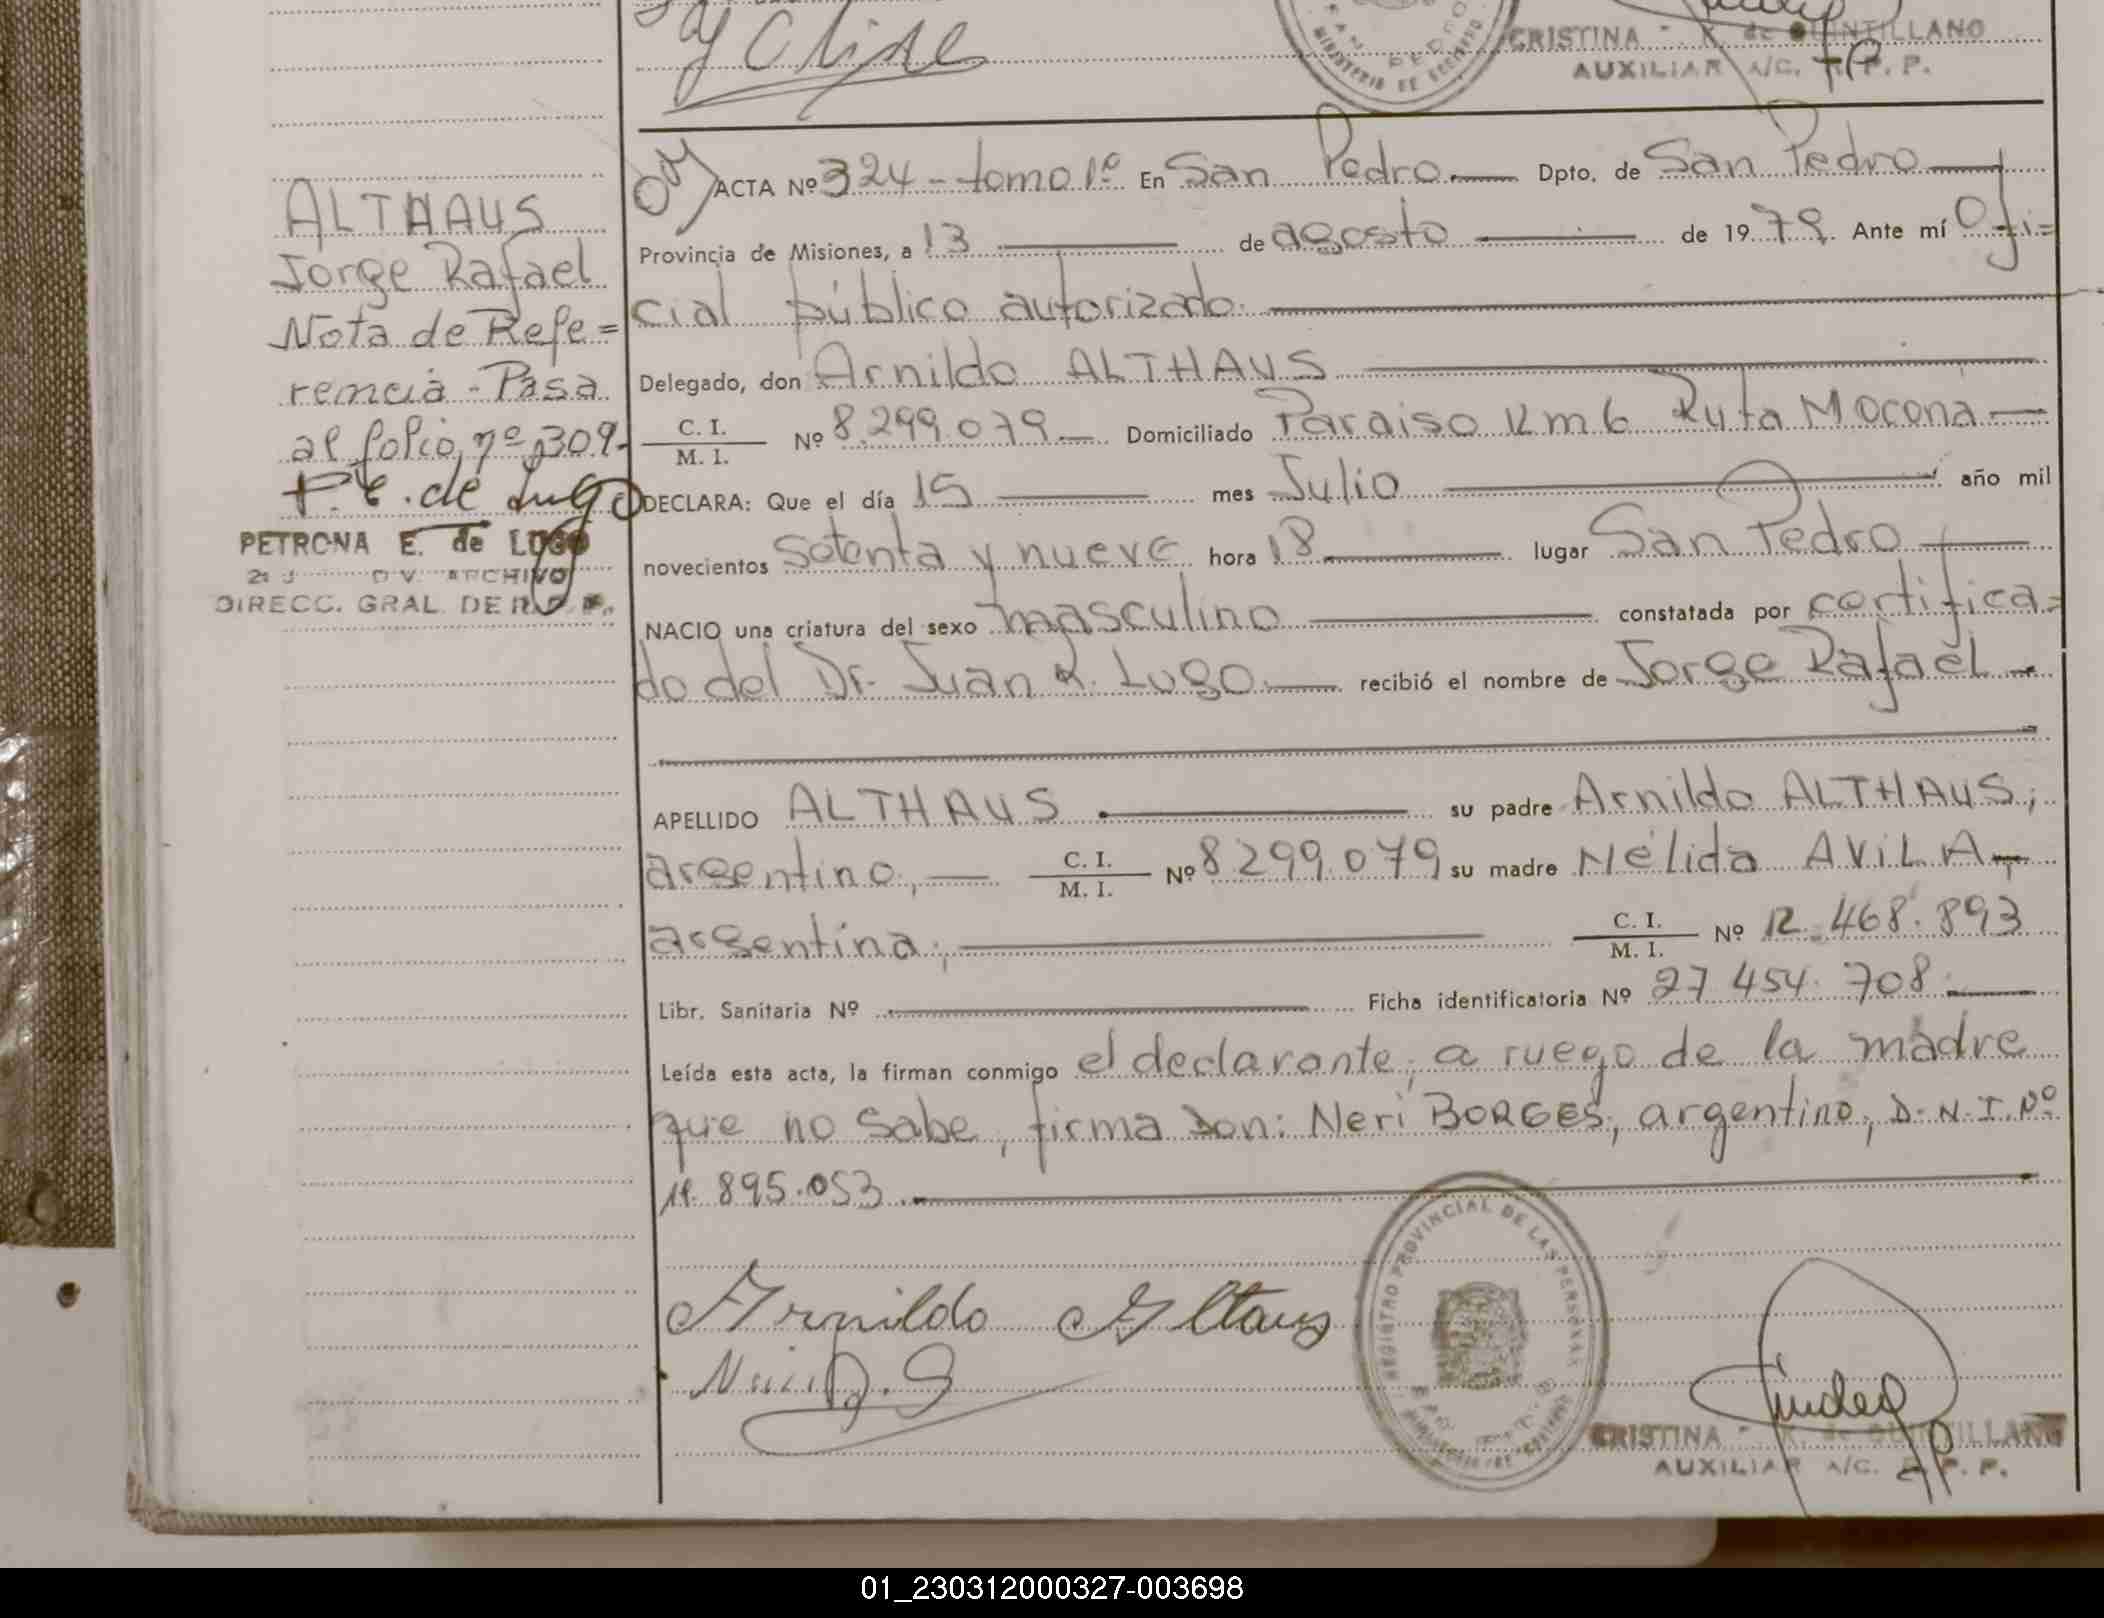 CRISTINA - K. de QUINTILLANO
AUXILIAR A/C. R. P. P.
ACTA Nº 324 - tomo 1º En San Pedro Dpto. de San Pedro
Provincia de Misiones, a 13 de agosto de 1979. Ante mí Ofi=
cial público autorizado.
Delegado, don Arnildo ALTHAUS
C. I.
M. I.
Nº 8.299.079 Domiciliado Paraiso Km 6 Ruta Mocona
DECLARA: Que el día 15 mes Julio año mil
novecientos setenta y nueve hora 18 lugar San Pedro
NACIO una criatura del sexo masculino constatada por certifica=
do del Dr. Juan R. Lugo recibió el nombre de Jorge Rafael
APELLIDO ALTHAUS su padre Arnildo ALTHAUS,
argentino, C. I. / M. I. Nº 8299.079 su madre Nélida AVILA
argentina, C. I. / M. I. Nº 12.468.893
Libr. Sanitaria Nº Ficha identificatoria Nº 27 454.708
Leída esta acta, la firman conmigo el declarante, a ruego de la madre
que no sabe, firma Don: Neri BORGES, argentino, D.N.I. Nº
11.895.053
Arnildo Altaus
REGISTRO PROVINCIAL DE LAS PERSONAS
CRISTINA - K. de QUINTILLANO
AUXILIAR A/C. R. P. P.
ALTHAUS
Jorge Rafael
Nota de Refe=
rencia - Pasa
al folio nº 309-
P. E. de Lugo
PETRONA E. de LUGO
DIV. ARCHIVO
DIRECC. GRAL. DE R. P. P.
01_230312000327-003698